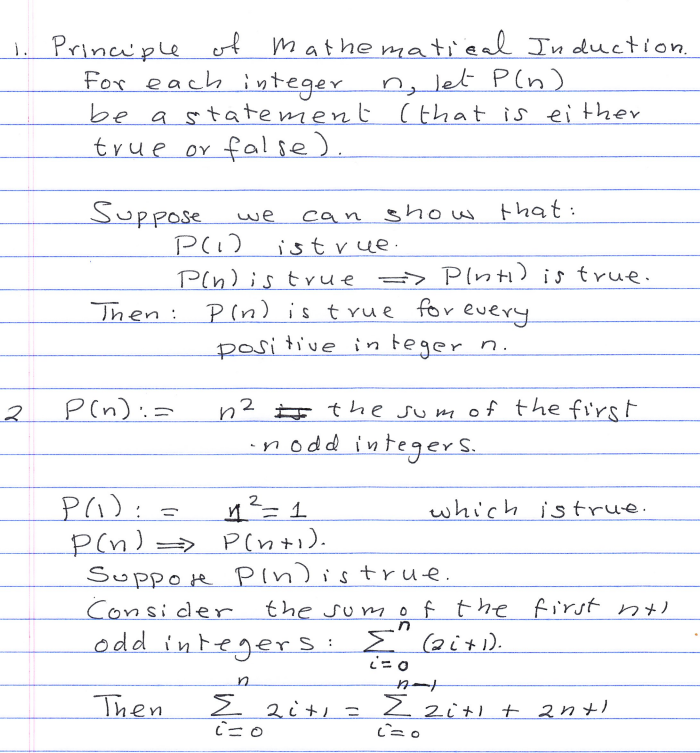 1. Principle of Mathematical Induction.
For each integer n, let P(n)
be a statement (that is either
true or false).
Suppose we can show that:
P(1) is true.
P(n) is true ⟹ P(n+1) is true.
Then: P(n) is true for every
positive integer n.
2 P(n):= n² = the sum of the first
n odd integers.
P(1): = 1² = 1 which is true.
P(n) ⟹ P(n+1).
Suppose P(n) is true.
Consider the sum of the first n+1
odd integers: ∑_{i=0}^{n} (2i+1).
Then ∑_{i=0}^{n} 2i+1 = ∑_{i=0}^{n-1} 2i+1 + 2n+1